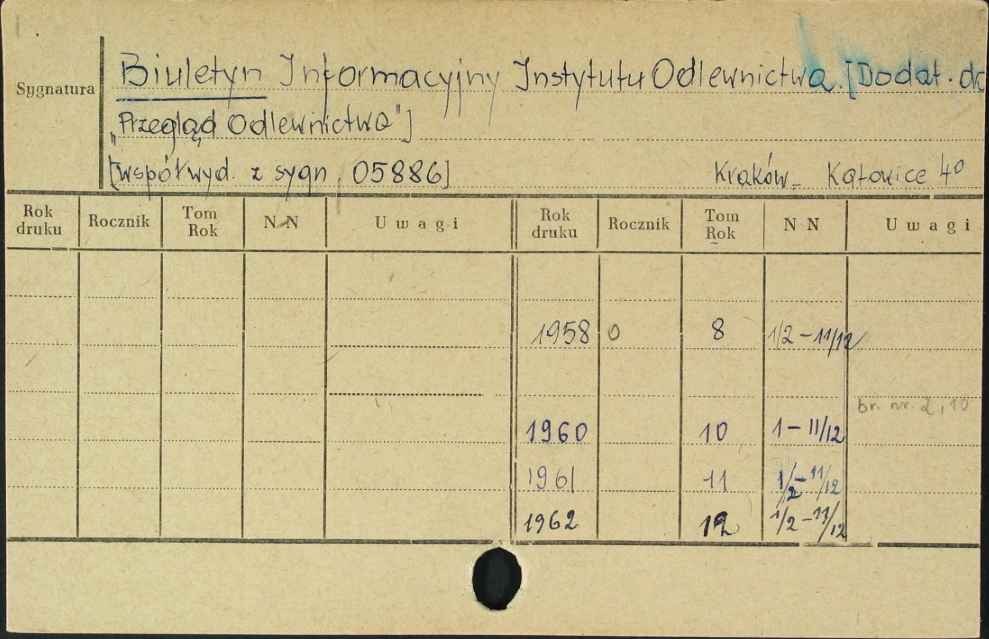 Sygnatura
Biuletyn Informacyjny Instytutu Odlewnictwa [Dodat. do
„Przegląd Odlewnictwa"]
[współwyd. z sygn. 05886] Kraków - Katowice 40
Rok druku Rocznik Tom Rok N N Uwagi Rok druku Rocznik Tom Rok N N Uwagi
1958 0 8 1/2 - 11/12
br. nr. 2, 10
1960 10 1 - 11/12
1961 11 1/2 - 11/12
1962 12 1/2 - 11/12